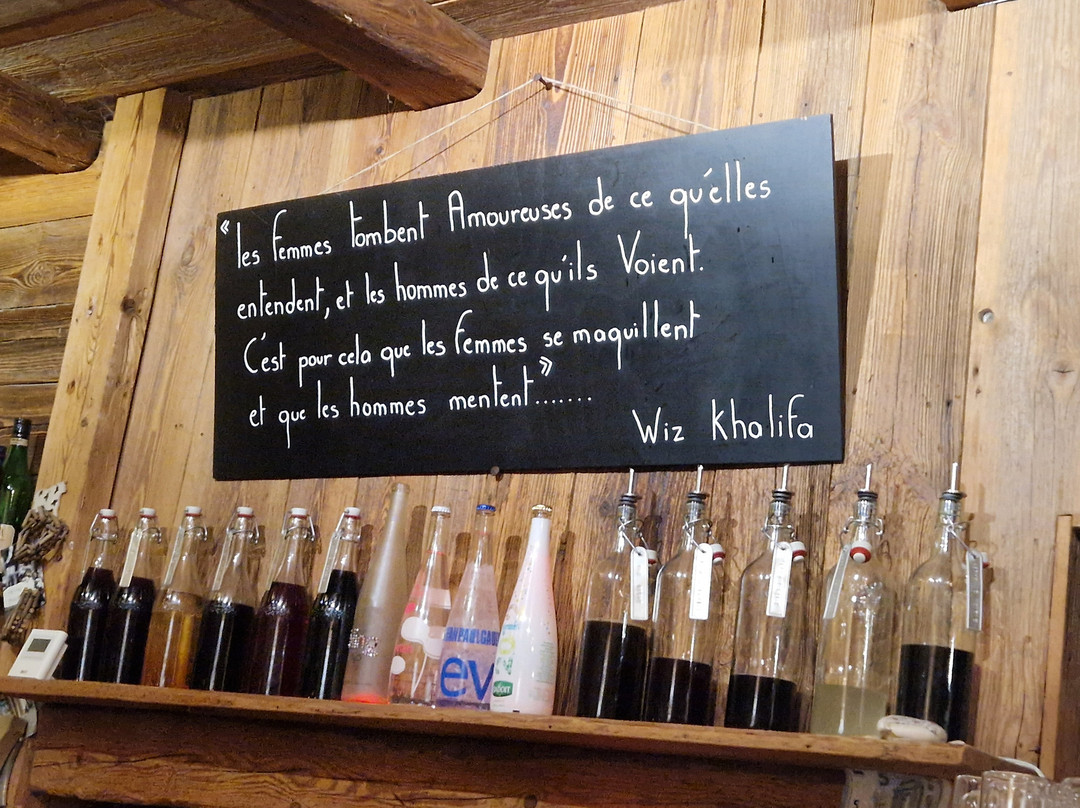 « les femmes tombent Amoureuses de ce qu'elles
entendent, et les hommes de ce qu'ils Voient.
C'est pour cela que les femmes se maquillent
et que les hommes mentent ».......
Wiz Khalifa
ev